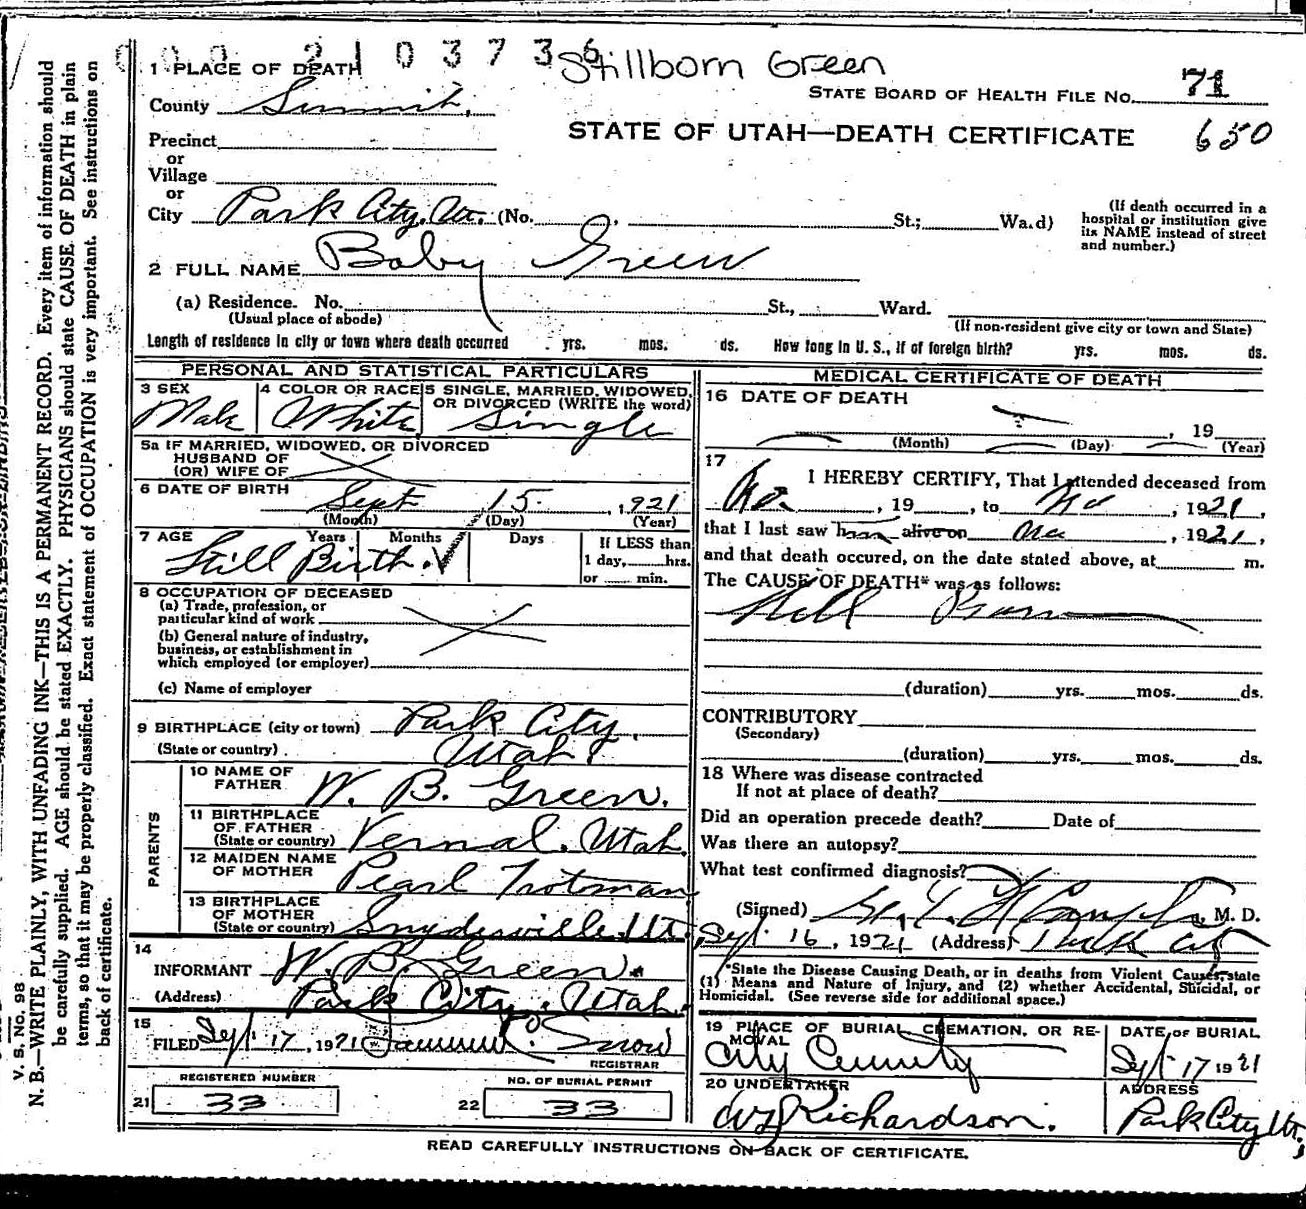 210373
Stillborn Green
1 PLACE OF DEATH
STATE BOARD OF HEALTH FILE No. 71
County Summit,
STATE OF UTAH—DEATH CERTIFICATE 650
Precinct
or
Village
or
City Park City, Ut. (No. , St.; Wa.d)
(If death occurred in a
hospital or institution give
its NAME instead of street
and number.)
2 FULL NAME Baby Green
(a) Residence. No. St., Ward.
(Usual place of abode) (If non-resident give city or town and State)
Length of residence in city or town where death occurred yrs. mos. ds. How long in U. S., if of foreign birth? yrs. mos. ds.
PERSONAL AND STATISTICAL PARTICULARS
3 SEX Male
4 COLOR OR RACE White
5 SINGLE, MARRIED, WIDOWED,
OR DIVORCED (WRITE the word)
Single
5a IF MARRIED, WIDOWED, OR DIVORCED
HUSBAND OF
(OR) WIFE OF
6 DATE OF BIRTH
Sept 15, 1921
(Month) (Day) (Year)
7 AGE Years Months Days If LESS than
Still Birth. 1 day, hrs.
or min.
8 OCCUPATION OF DECEASED
(a) Trade, profession, or
particular kind of work
(b) General nature of industry,
business, or establishment in
which employed (or employer)
(c) Name of employer
9 BIRTHPLACE (city or town) Park City,
(State or country) Utah
PARENTS
10 NAME OF
FATHER W. B. Green.
11 BIRTHPLACE
OF FATHER
(State or country) Vernal, Utah.
12 MAIDEN NAME
OF MOTHER Pearl Trotman
13 BIRTHPLACE
OF MOTHER
(State or country) Snyderville, Ut.
14
INFORMANT W. B. Green.
(Address) Park City, Utah.
15
FILED Sept 17, 1921 Snow
REGISTRAR
REGISTERED NUMBER
21 33
NO. OF BURIAL PERMIT
22 33
MEDICAL CERTIFICATE OF DEATH
16 DATE OF DEATH
, 19
(Month) (Day) (Year)
17 I HEREBY CERTIFY, That I attended deceased from
No. , 19 , to No , 1921,
that I last saw h alive on , 1921,
and that death occured, on the date stated above, at m.
The CAUSE OF DEATH* was as follows:
Still Born
(duration) yrs. mos. ds.
CONTRIBUTORY
(Secondary)
(duration) yrs. mos. ds.
18 Where was disease contracted
If not at place of death?
Did an operation precede death? Date of
Was there an autopsy?
What test confirmed diagnosis?
(Signed) M. D.
Sept. 16, 1921 (Address) Park City
*State the Disease Causing Death, or in deaths from Violent Causes, state
(1) Means and Nature of Injury, and (2) whether Accidental, Suicidal, or
Homicidal. (See reverse side for additional space.)
19 PLACE OF BURIAL, CREMATION, OR RE-
MOVAL
City
DATE OF BURIAL
Sept 17 1921
20 UNDERTAKER
Richardson.
ADDRESS
Park City Ut.,
READ CAREFULLY INSTRUCTIONS ON BACK OF CERTIFICATE.
V. S. No. 98
N. B.—WRITE PLAINLY, WITH UNFADING INK—THIS IS A PERMANENT RECORD. Every item of information should
be carefully supplied. AGE should be stated EXACTLY. PHYSICIANS should state CAUSE OF DEATH in plain
terms, so that it may be properly classified. Exact statement of OCCUPATION is very important. See instructions on
back of certificate.